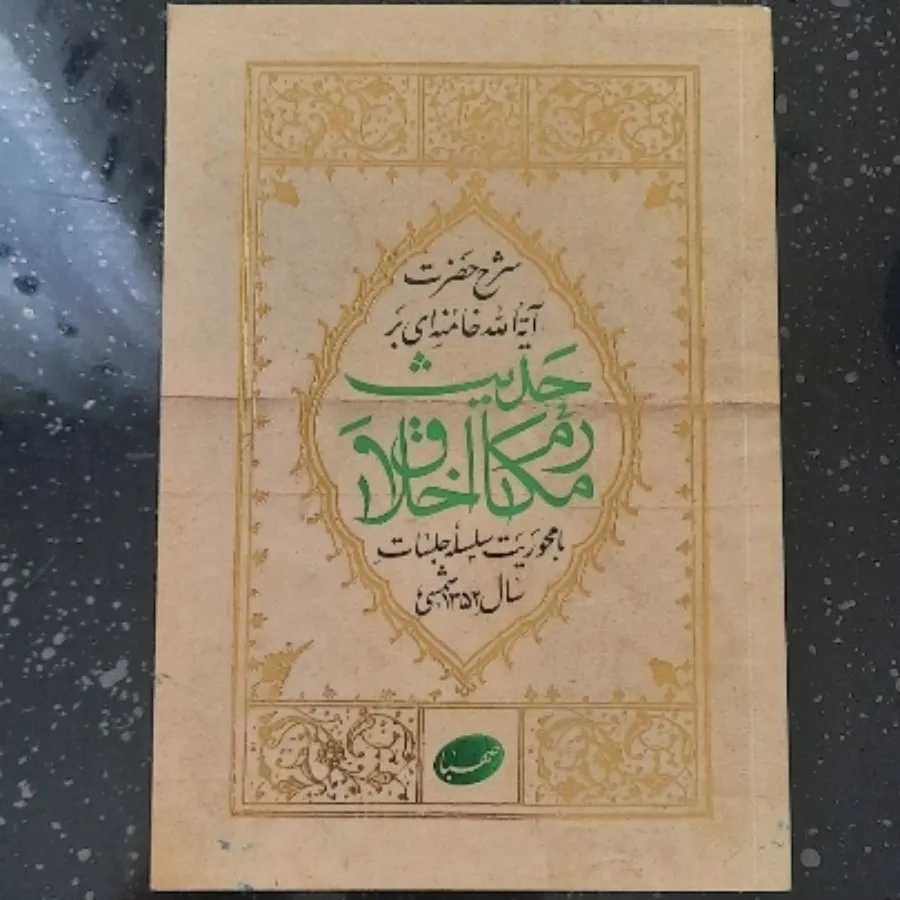 شرح حضرت
آیةالله خامنه‌ای بر
حدیث
مکارم
اخلاق
با محوریت سلسله جلسات
سال ۱۳۵۲ شمسی
صهبا